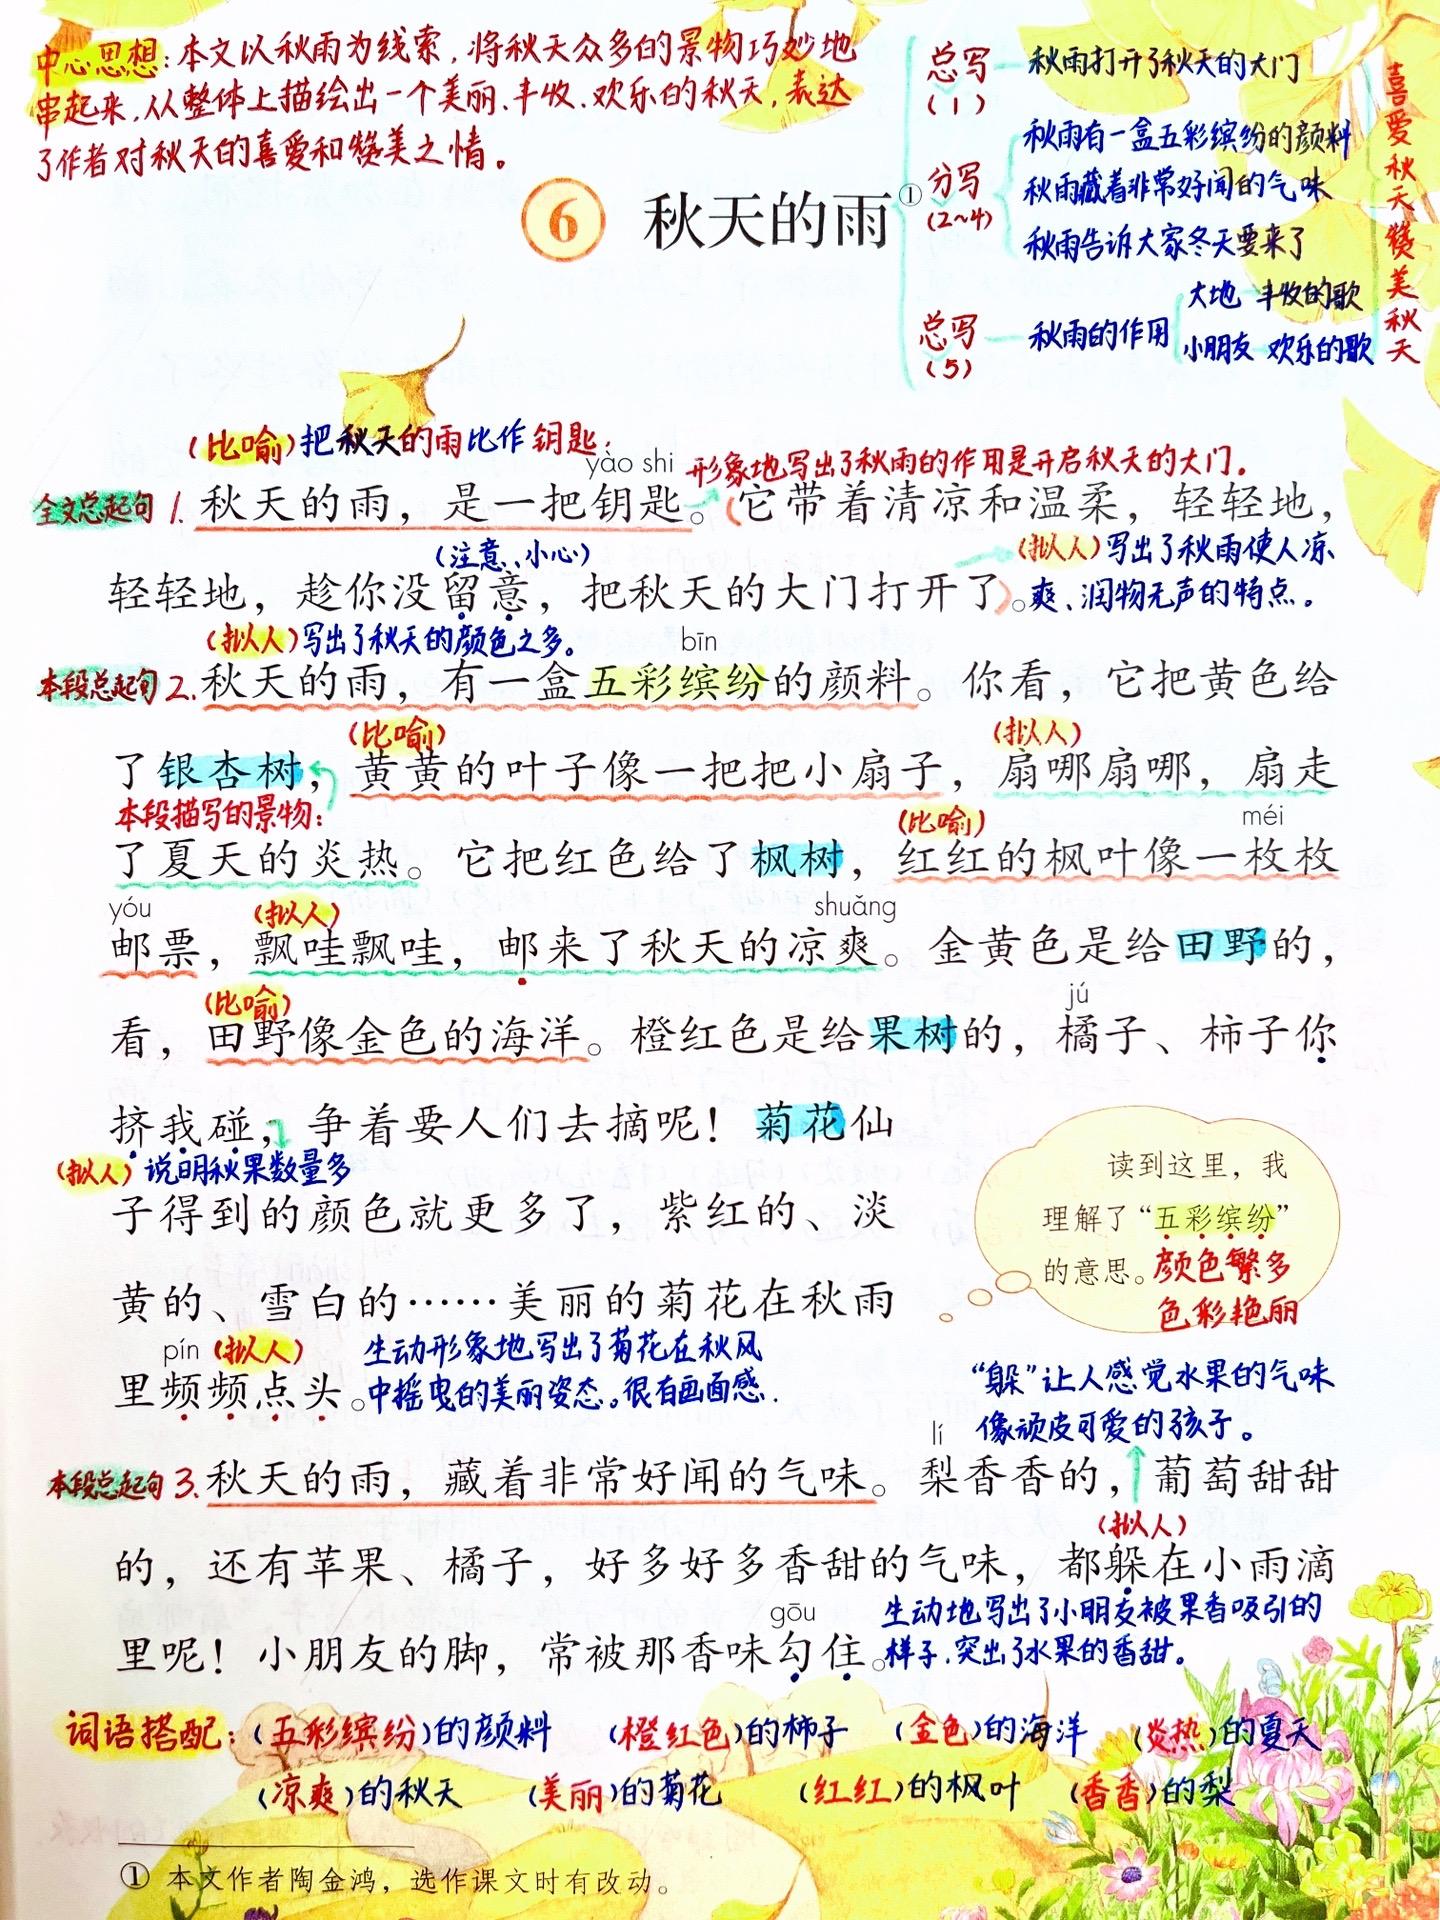 中心思想：本文以秋雨为线索，将秋天众多的景物巧妙地
串起来，从整体上描绘出一个美丽、丰收、欢乐的秋天，表达
了作者对秋天的喜爱和赞美之情。
总写
(1)
秋雨打开了秋天的大门
分写
(2~4)
秋雨有一盒五彩缤纷的颜料
秋雨藏着非常好闻的气味
秋雨告诉大家冬天要来了
总写
(5)
秋雨的作用
大地 丰收的歌
小朋友 欢乐的歌
喜爱秋天赞美秋天
6 秋天的雨①
(比喻)把秋天的雨比作钥匙，
形象地写出了秋雨的作用是开启秋天的大门。
yào shi
全文总起句 1. 秋天的雨，是一把钥匙。(它带着清凉和温柔，轻轻地，
(注意、小心)
(拟人)写出了秋雨使人凉
轻轻地，趁你没留意，把秋天的大门打开了)。爽、润物无声的特点。
(拟人)写出了秋天的颜色之多。
bīn
本段总起句 2. 秋天的雨，有一盒五彩缤纷的颜料。你看，它把黄色给
(比喻) (拟人)
了银杏树，黄黄的叶子像一把把小扇子，扇哪扇哪，扇走
本段描写的景物：
(比喻) méi
了夏天的炎热。它把红色给了枫树，红红的枫叶像一枚枚
yóu (拟人) shuǎng
邮票，飘哇飘哇，邮来了秋天的凉爽。金黄色是给田野的，
(比喻) jú
看，田野像金色的海洋。橙红色是给果树的，橘子、柿子你
挤我碰，争着要人们去摘呢！菊花仙
(拟人)说明秋果数量多
子得到的颜色就更多了，紫红的、淡
黄的、雪白的……美丽的菊花在秋雨
pín (拟人) 生动形象地写出了菊花在秋风
里频频点头。中摇曳的美丽姿态。很有画面感.
读到这里，我
理解了“五彩缤纷”
的意思。颜色繁多
色彩艳丽
“躲”让人感觉水果的气味
像顽皮可爱的孩子。
lí
本段总起句 3. 秋天的雨，藏着非常好闻的气味。梨香香的，葡萄甜甜
(拟人)
的，还有苹果、橘子，好多好多香甜的气味，都躲在小雨滴
gōu 生动地写出了小朋友被果香吸引的
里呢！小朋友的脚，常被那香味勾住。样子，突出了水果的香甜。
词语搭配：(五彩缤纷)的颜料 (橙红色)的柿子 (金色)的海洋 (炎热)的夏天
(凉爽)的秋天 (美丽)的菊花 (红红)的枫叶 (香香)的梨
① 本文作者陶金鸿，选作课文时有改动。